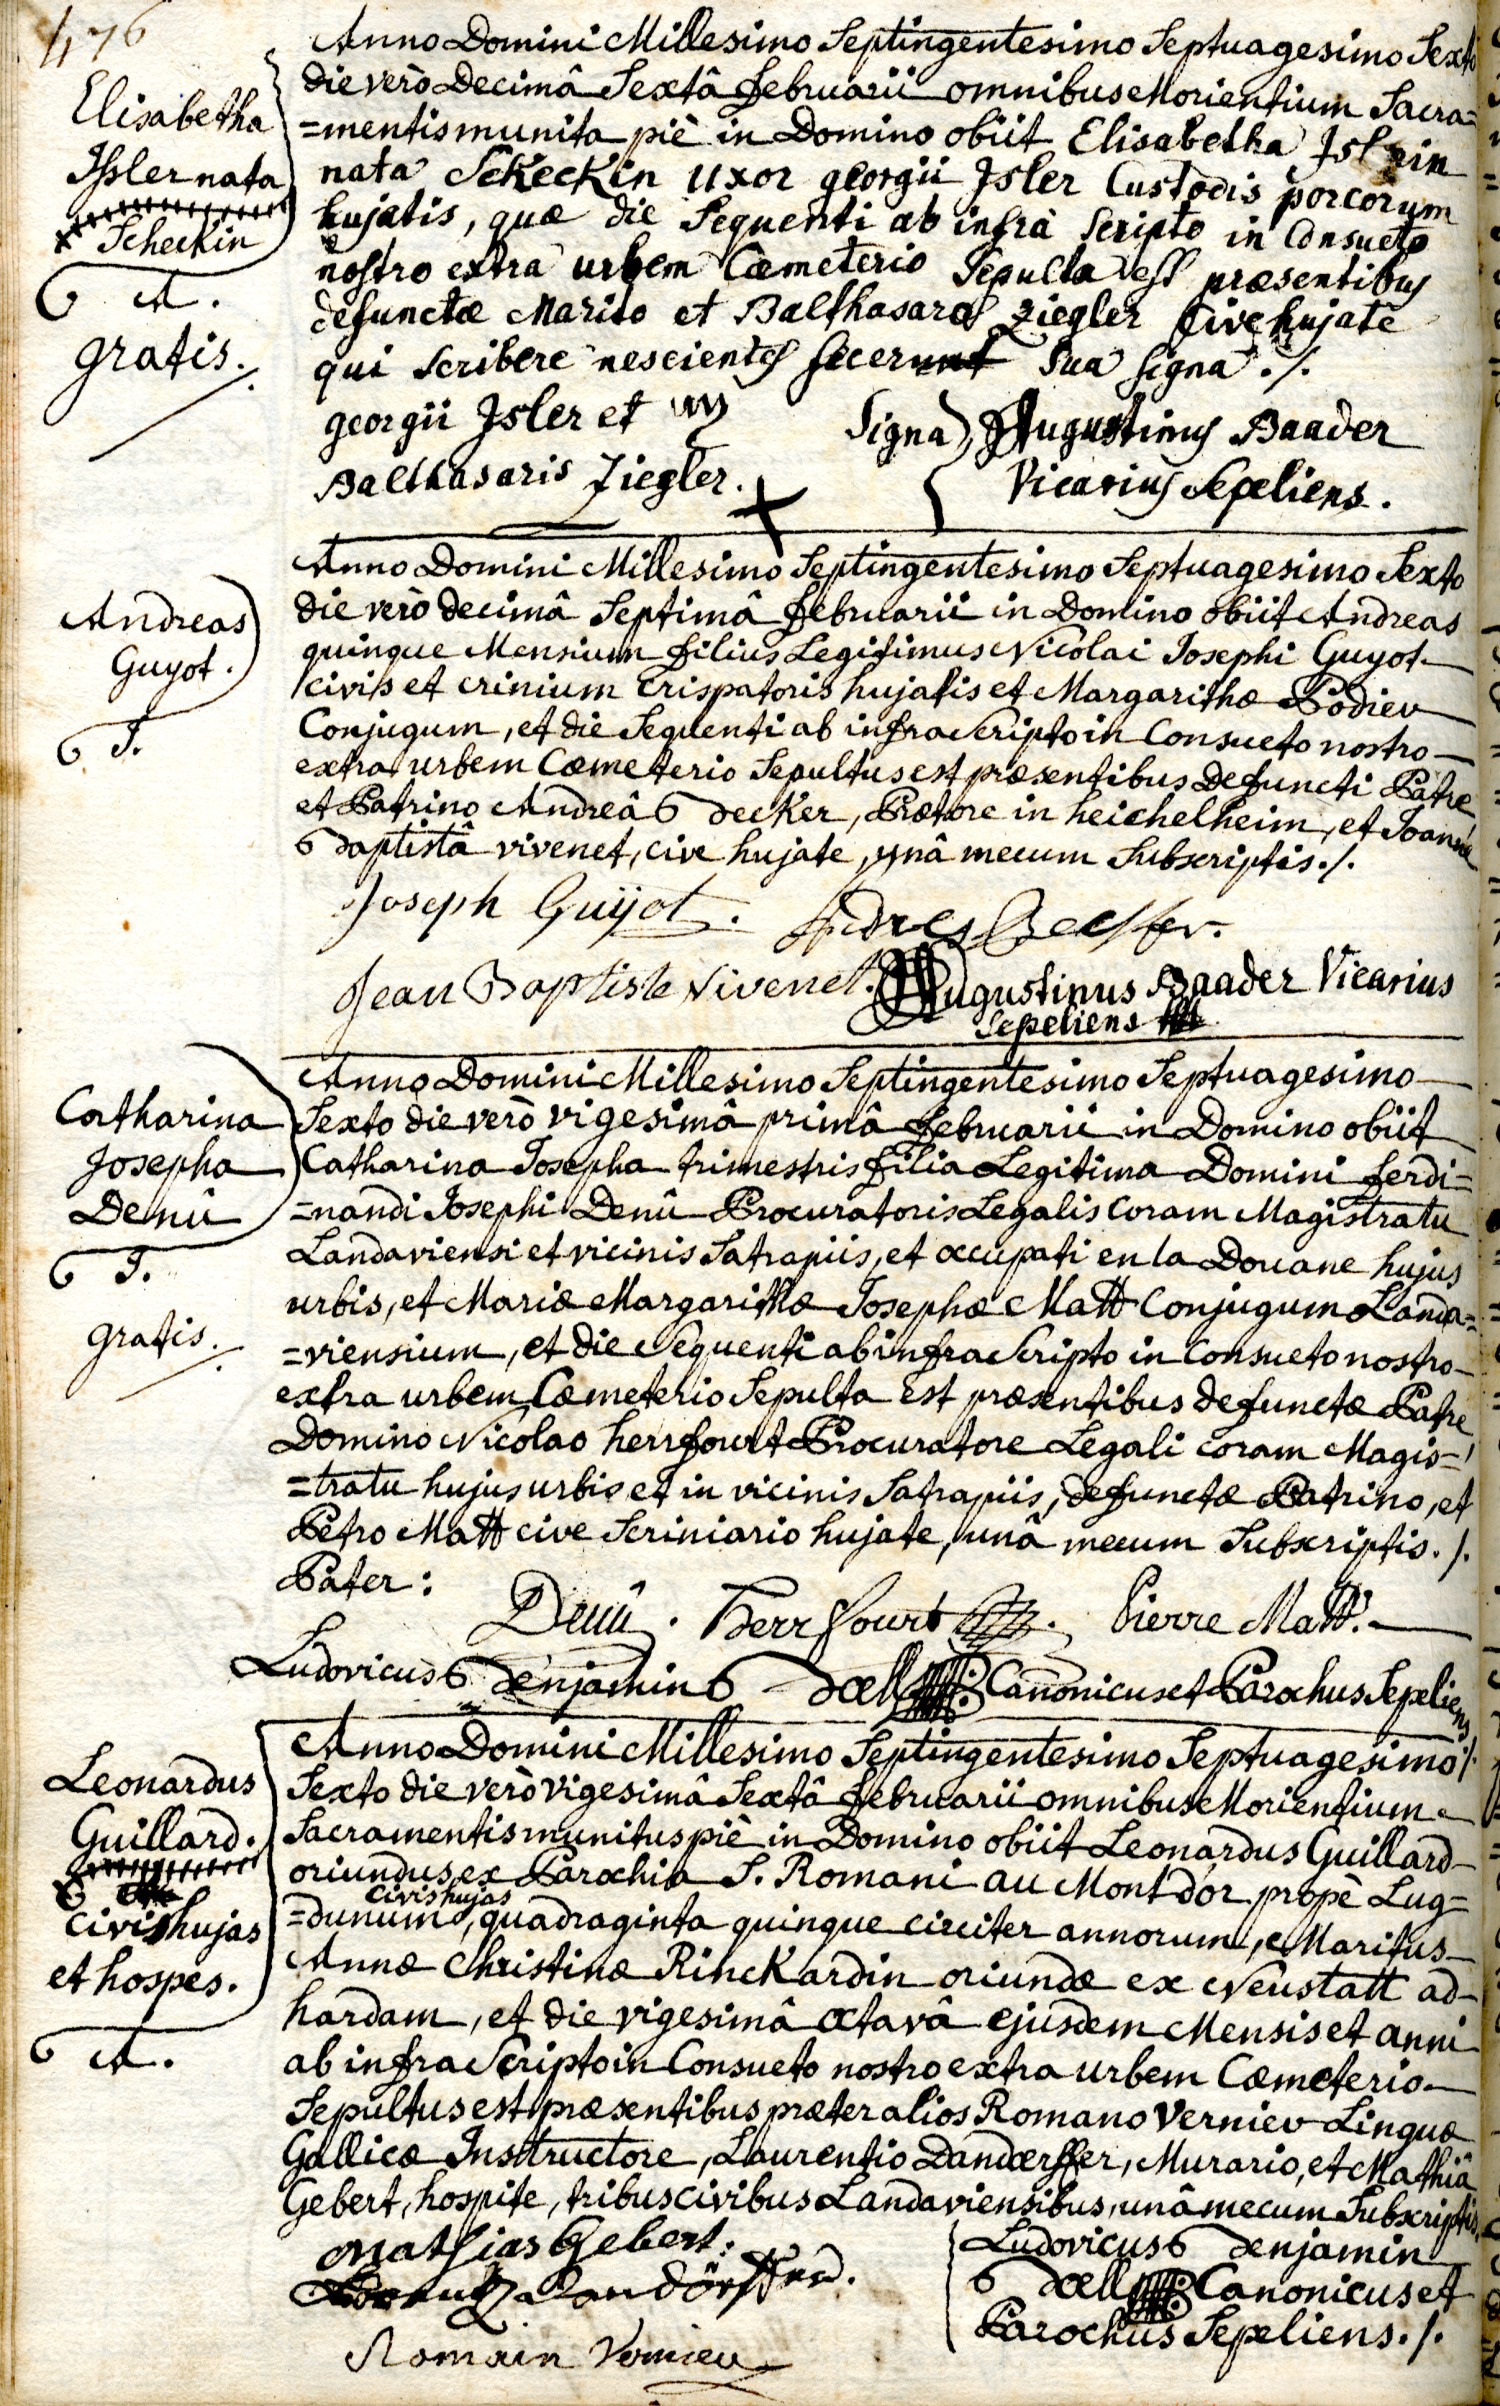 476
Elisabetha
Jsler nata
Scheckin
A.
gratis.
Anno Domini Millesimo Septingentesimo Septuagesimo Sexto
die verò Decimâ Sextâ februarii omnibus Morientium Sacra=
=mentis munita piè in Domino obiit Elisabetha Jslerin
nata Scheckin uxor georgii Jsler Custodis porcorum
hujatis, quæ die Sequenti ab infrà Scripto in Consueto
nostro extra urbem Cæmeterio Sepulta est præsentibus
defunctæ Marito et Balthasara Ziegler Cive hujate
qui Scribere nescientes fecerunt Sua Signa ./.
georgii Jsler et
Balthasaris Ziegler.
Signa
Augustinus Baader
Vicarius Sepeliens.
Andreas
Guyot.
J.
Anno Domini Millesimo Septingentesimo Septuagesimo Sexto
die verò decimâ Septimâ februarii in Domino obiit Andreas
quinque Mensium filius Legitimus Nicolai Josephi Guyot
civis et crinium Crispatoris hujatis et Margarithæ Podiev
Conjugum, et die Sequenti ab infra Scripto in Consueto nostro
extra urbem Cæmeterio Sepultus est præsentibus Defuncti Patre
et Patrino Andreâ Becker, Prætore in heichelheim, et Joanne
Baptistâ vivenet, cive hujate, unâ mecum Subscriptis ./.
Joseph Guÿot.
Andres Becker.
Jean Baptiste Vivenet.
Augustinus Baader Vicarius
Sepeliens
Catharina
Josepha
Denû
J.
gratis.
Anno Domini Millesimo Septingentesimo Septuagesimo
Sexto die verò vigesimâ primâ februarii in Domino obiit
Catharina Josepha trimestris filia Legitima Domini ferdi=
=nandi Josephi Denû Procuratoris Legalis Coram Magistratu
Landaviensi et vicinis Satrapiis, et occupati en la Douane hujus
urbis, et Mariæ Margarithæ Josephæ Matt Conjugum Landa=
=viensium, et die Sequenti ab infra Scripto in Consueto nostro
extra urbem Cæmeterio Sepulta est præsentibus defunctæ Patre
Domino Nicolao herrfourt Procuratore Legali coram Magis=
=tratu hujus urbis et in vicinis Satrapiis, defunctæ Patrino, et
Petro Matt cive Scriniario hujate, unâ mecum Subscriptis ./.
Pater:
Denû. Herrfourt. Pierre Matt.
Ludovicus Benjamin Boell Canonicus et Parochus Sepeliens
Leonardus
Guillard.
civis hujas
et hospes.
A.
Anno Domini Millesimo Septingentesimo Septuagesimo
Sexto die verò Vigesimâ Sextâ februarii omnibus Morientium
Sacramentis munitus piè in Domino obiit Leonardus Guillard
oriundus ex Parochia S. Romani au Mont d'or propè Lug=
civis hujas
=dunum, quadraginta quinque circiter annorum, Maritus
Annæ Christinæ Rinckardin oriundæ ex Neustatt ad
hardam, et die vigesimâ octavâ ejusdem Mensis et anni
ab infra Scripto in Consueto nostro extra urbem Cæmeterio
Sepultus est præsentibus præter alios Romano Verniev Linguæ
Gallicæ Instructore, Laurentio Dandærffer, Murario, et Mathiâ
Gebert, hospite, tribus civibus Landaviensibus, unâ mecum Subscriptis
Mathias Gebert:
Dandörffer.
Romain Verniev
Ludovicus Benjamin
Boell Canonicus et
Parochus Sepeliens ./.